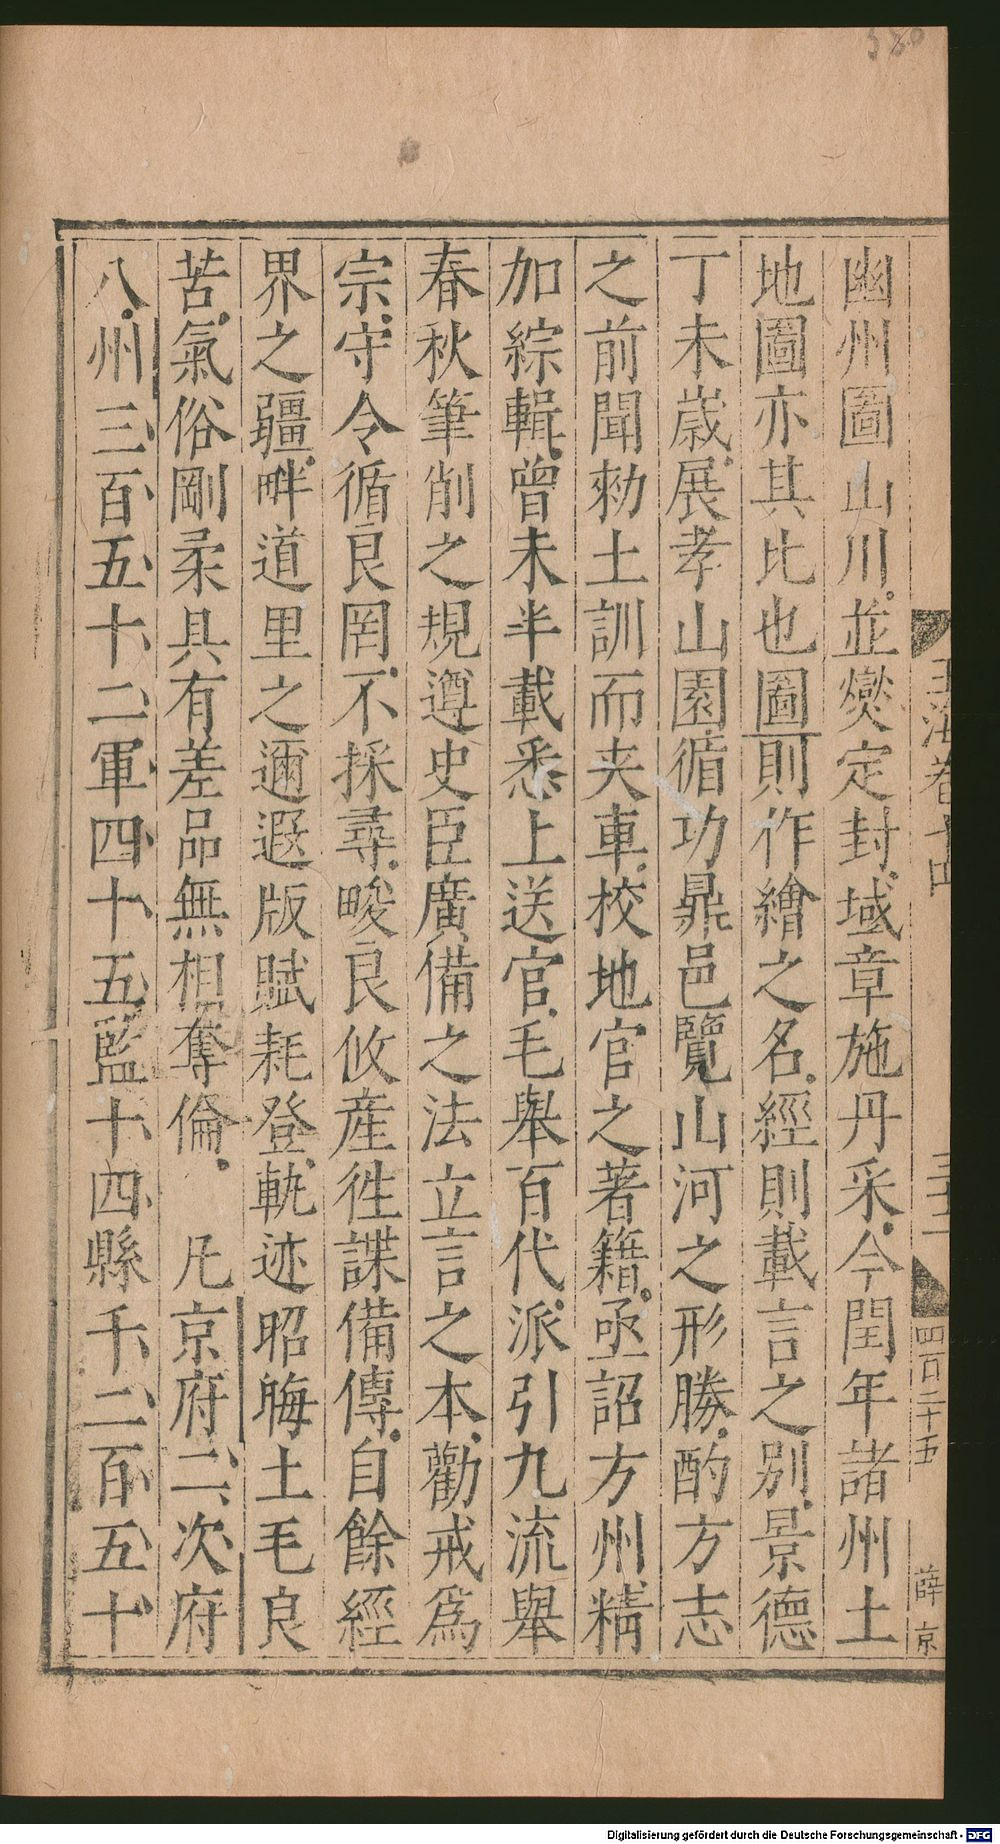 幽州圖山川並爕定封域章施丹采今閏年諸州土
地圖亦其比也圖則作繪之名經則載言之别景德
丁未歲展孝山園循功鼎邑覽山河之形勝酌方志
之前聞勑土訓而夾車校地官之著籍亟詔方州精
加綜輯曾未半載悉上送官毛舉百代派引九流舉
春秋筆削之規遵史臣廣備之法立言之本勸戒爲
宗守令循良罔不採尋畯良攸産徃諜備傳自餘經
界之疆畔道里之邇遐版賦耗登軌迹昭晦土毛良
苦氣俗剛柔具有差品無相奪倫 凡京府二次府
八州三百五十二軍四十五監十四縣千二百五十
玉海卷十四
四百二十五
薛京
580
Digitalisierung gefördert durch die Deutsche Forschungsgemeinschaft - DFG